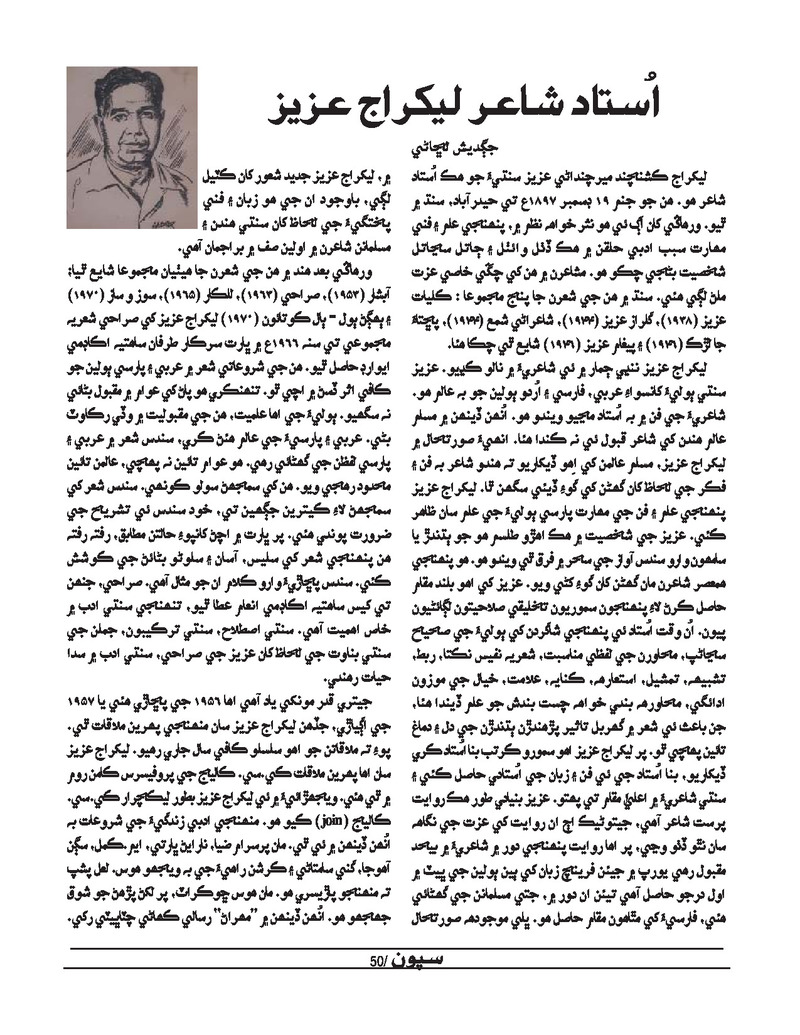 اُستاد شاعر ليکراج عزيز
جڳديش لڇاڻي
ليکراج ڪشنچند ميرچنداڻي عزيز سنڌيءَ جو هڪ اُستاد
شاعر هو. هن جو جنم ١٩ ڊسمبر ١٨٩٧ع تي حيدرآباد، سنڌ ۾
ٿيو. ورهاڱي کان اڳ ئي هو نثر خواهه نظم ۾، پنهنجي علم ۽ فني
مهارت سبب ادبي حلقن ۾ هڪ ڏٺل وائٺل ۽ ڄاتل سڃاتل
شخصيت بڻجي چڪو هو. مشاعرن ۾ هن کي چڱي خاصي عزت
ملڻ لڳي هئي. سنڌ ۾ هن جي شعرن جا پنج مجموعا : ڪليات
عزيز (١٩٣٨)، گلزار عزيز (١٩٤٤)، شاعراڻي شمع (١٩٤٤)، پڇتاءَ
جا ڳڙڪ (١٩٤٦) ۽ پيغام عزيز (١٩٤٦) شايع ٿي چڪا هئا.
ليکراج عزيز ننڍي ڄمار ۾ ئي شاعريءَ ۾ نالو ڪڍيو. عزيز
سنڌي ٻوليءَ کانسواءِ عربي، فارسي ۽ اُردو ٻولين جو به عالم هو.
شاعريءَ جي فن ۾ به اُستاد مڃيو ويندو هو. اُنهن ڏينهن ۾ مسلم
عالم هندن کي شاعر قبول ئي نه ڪندا هئا. انهيءَ صورتحال ۾
ليکراج عزيز، مسلم عالمن کي اِهو ڏيکاريو ته هندو شاعر به فن ۽
فڪر جي لحاظ کان گهڻن کي گوءِ ڏيئي سگهن ٿا. ليکراج عزيز
پنهنجي علم ۽ فن جي مهارت پارسي ٻوليءَ جي علم سان ظاهر
ڪئي. عزيز جي شخصيت ۾ هڪ اهڙو طلسم هو جو ٻڌندڙ يا
سامهون وارو سندس آواز جي سحر ۾ غرق ٿي ويندو هو. هو پنهنجي
همعصر شاعرن مان گهڻن کان گوءِ کڻي ويو. عزيز کي اهو بلند مقام
حاصل ڪرڻ لاءِ پنهنجون سموريون تخليقي صلاحيتون لڳائڻيون
پيون. اُن وقت اُستاد ئي پنهنجي شاگردن کي ٻوليءَ جي صحيح
سڃاڻپ، محاورن جي لفظي مناسبت، شعريه نفيس نڪتا، ربط،
تشبيهه، تمثيل، استعاره، ڪنايه، علامت، خيال جي موزون
ادائگي، محاوره بندي خواهه چست بندش جو علم ڏيندا هئا،
جن باعث ئي شعر ۾ گهربل تاثير پڙهندڙن ٻڌندڙن جي دل ۽ دماغ
تائين پهچي ٿو. پر ليکراج عزيز اهو سمورو ڪرتب بنا اُستاد ڪري
ڏيکاريو، بنا اُستاد جي ئي فن ۽ زبان جي اُستادي حاصل ڪئي ۽
سنڌي شاعريءَ ۾ اعليٰ مقام تي پهتو. عزيز بنيادي طور هڪ روايت
پرست شاعر آهي، جيتوڻيڪ اڄ ان روايت کي عزت جي نگاهه
سان نٿو ڏٺو وڃي، پر اها روايت پنهنجي دور ۾ شاعريءَ ۾ بيحد
مقبول رهي يورپ ۾ جيئن فرينچ زبان کي ٻين ٻولين جي ڀيٽ ۾
اول درجو حاصل آهي تيئن ان دور ۾، جتي مسلمانن جي گهڻائي
هئي، فارسيءَ کي مٿاهون مقام حاصل هو. ڀلي موجوده صورتحال
۾، ليکراج عزيز جديد شعور کان ڪٽيل
لڳي، باوجود ان جي هو زبان ۽ فني
پختگيءَ جي لحاظ کان سنڌي هندن ۽
مسلمانن شاعرن ۾ اولين صف ۾ براجمان آهي.
ورهاڱي بعد هند ۾ هن جي شعرن جا هيٺيان مجموعا شايع ٿيا:
آبشار (١٩٥٣)، صراحي (١٩٦٣)، للڪار (١٩٦٥)، سوز و ساز (١٩٧٠)
۽ ٻهڳڻ ٻول – ٻال ڪوتائون (١٩٧٠) ليکراج عزيز کي صراحي شعريه
مجموعي تي سنه ١٩٦٦ع ۾ ڀارت سرڪار طرفان ساهتيه اڪاڊمي
ايوارڊ حاصل ٿيو. هن جي شروعاتي شعر ۾ عربي ۽ پارسي ٻولين جو
ڪافي اثر ڏسڻ ۾ اچي ٿو. تنهنڪري هو پاڻ کي عوام ۾ مقبول بڻائي
نه سگهيو. ٻوليءَ جي اها علميت، هن جي مقبوليت ۾ وڏي رڪاوٽ
بڻي. عربي ۽ پارسيءَ جي عالم هئڻ ڪري، سندس شعر ۾ عربي ۽
پارسي لفظن جي گهڻائي رهي. هو عوام تائين نه پهچي، عالمن تائين
محدود رهجي ويو. هن کي سمجهڻ سولو ڪونهي. سندس شعر کي
سمجهڻ لاءِ ڪيترين جڳهين تي، خود سندس ئي تشريح جي
ضرورت پوندي هئي. پر ڀارت ۾ اچڻ کانپوءِ حالتن مطابق، رفته رفته
هن پنهنجي شعر کي سليس، آسان ۽ سلوڻو بڻائڻ جي ڪوشش
ڪئي. سندس پڇاڙيءَ وارو ڪلام ان جو مثال آهي. صراحي، جنهن
تي کيس ساهتيه اڪاڊمي انعام عطا ٿيو، تنهنجي سنڌي ادب ۾
خاص اهميت آهي. سنڌي اصطلاح، سنڌي ترڪيبون، جملن جي
سنڌي بناوت جي لحاظ کان عزيز جي صراحي، سنڌي ادب ۾ سدا
حيات رهندي.
جيتري قدر مونکي ياد آهي اها ١٩٥٦ جي پڇاڙي هئي يا ١٩٥٧
جي اڳياڙي، جڏهن ليکراج عزيز سان منهنجي پهرين ملاقات ٿي.
پوءِ ته ملاقاتن جو اهو سلسلو ڪافي سال جاري رهيو. ليکراج عزيز
سان اها پهرين ملاقات ڪي.سي. ڪاليج جي پروفيسرس ڪامن روم
۾ ٿي هئي. ويجهڙائيءَ ۾ ئي ليکراج عزيز بطور ليڪچرار ڪي.سي.
ڪاليج (join) ڪيو هو. منهنجي ادبي زندگيءَ جي شروعات به
اُنهن ڏينهن ۾ ئي ٿي. مان پرسرام ضيا، نارائڻ ڀارتي، ايم.ڪمل، سڳن
آهوجا، گني سامتاڻي ۽ ڪرشن راهيءَ جي به ويجهو هوس. لعل پشپ
ته منهنجو پاڙيسري هو. مان هوس ڇوڪراٽ، پر لکڻ پڙهڻ جو شوق
جهجهو هو. اُنهن ڏينهن ۾ ”مهراڻ“ رسالي ڪهاڻي چٽاڀيٽي رکي.
سپون /50